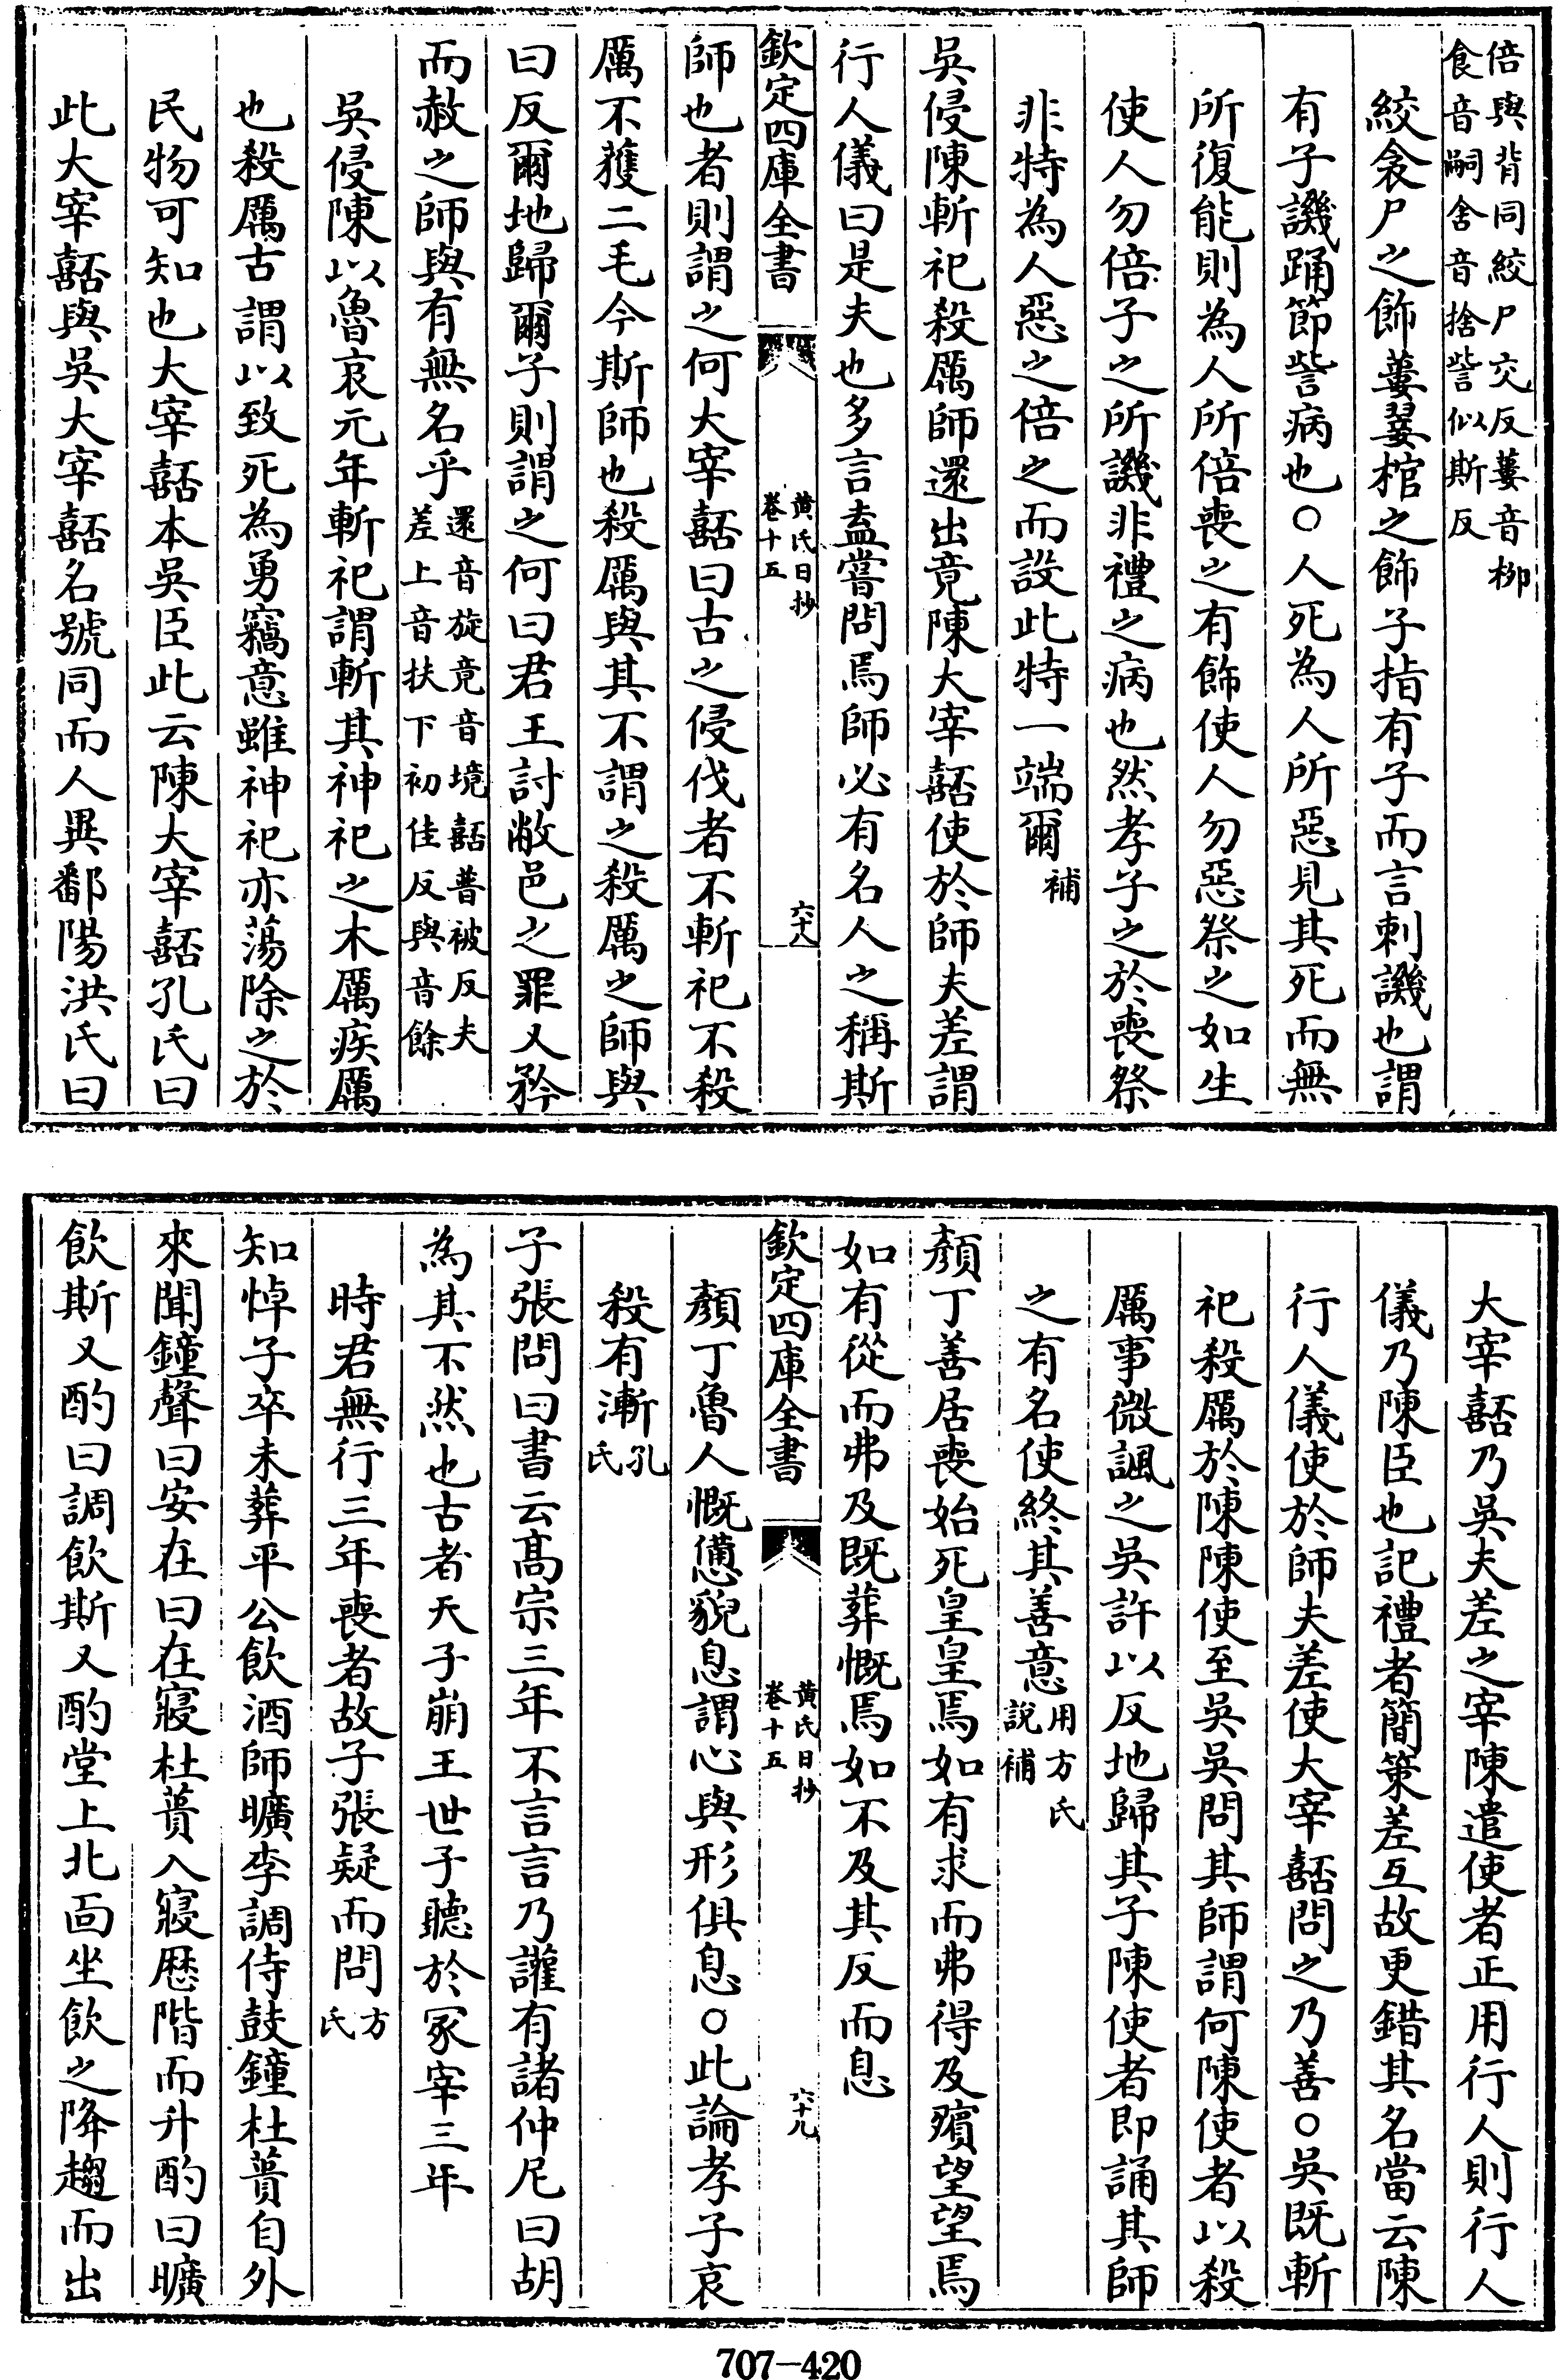 倍與背同絞尸交反蔞音柳
食音嗣舍音捨訾似斯反
絞衾尸之飾蔞翣棺之飾子指有子而言刺譏也謂
有子譏踊節訾病也○人死為人所惡見其死而無
所復能則為人所倍喪之有飾使人勿惡祭之如生
使人勿倍子之所譏非禮之病也然孝子之於喪祭
非特為人惡之倍之而設此特一端爾補
吳侵陳斬祀殺厲師還出竟陳大宰嚭使於師夫差謂
行人儀曰是夫也多言盍嘗問焉師必有名人之稱斯
欽定四庫全書
黃氏日抄
卷十五
六十八
師也者則謂之何大宰嚭曰古之侵伐者不斬祀不殺
厲不獲二毛今斯師也殺厲與其不謂之殺厲之師與
曰反爾地歸爾子則謂之何曰君王討敝邑之罪又矜
而赦之師與有無名乎還音旋竟音境嚭普被反夫
差上音扶下初佳反與音餘
吳侵陳以魯哀元年斬祀謂斬其神祀之木厲疾厲
也殺厲古謂以致死為勇竊意雖神祀亦蕩除之於
民物可知也大宰嚭本吳臣此云陳大宰嚭孔氏曰
此大宰嚭與吳大宰嚭名號同而人異鄱陽洪氏曰
大宰嚭乃吳夫差之宰陳遣使者正用行人則行人
儀乃陳臣也記禮者簡策差互故更錯其名當云陳
行人儀使於師夫差使大宰嚭問之乃善○吳既斬
祀殺厲於陳陳使至吳吳問其師謂何陳使者以殺
厲事微諷之吳許以反地歸其子陳使者即誦其師
之有名使終其善意用方氏
說補
顏丁善居喪始死皇皇焉如有求而弗得及殯望望焉
如有從而弗及既葬慨焉如不及其反而息
欽定四庫全書
黃氏日抄
卷十五
六十九
顏丁魯人慨憊貌息謂心與形俱息○此論孝子哀
殺有漸孔
氏
子張問曰書云髙宗三年不言言乃讙有諸仲尼曰胡
為其不然也古者天子崩王世子聽於冢宰三年
時君無行三年喪者故子張疑而問方
氏
知悼子卒未葬平公飲酒師曠李調侍鼓鐘杜蕢自外
來聞鐘聲曰安在曰在寢杜蕢入寢歴階而升酌曰曠
飲斯又酌曰調飲斯又酌堂上北面坐飲之降趨而出
707—420